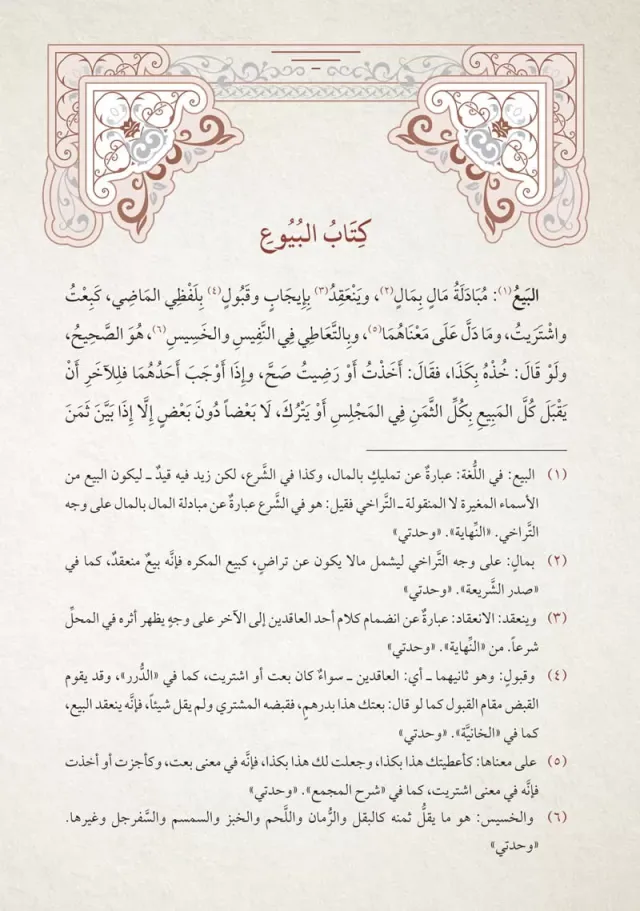 كِتَابُ البُيُوعِ
البَيعُ(١): مُبَادَلَةُ مَالٍ بِمَالٍ(٢)، ويَنْعَقِدُ(٣) بِإِيجَابٍ وقَبُولٍ(٤) بِلَفْظِي المَاضِي، كَبِعْتُ
واشْتَرَيتُ، ومَا دَلَّ عَلَى مَعْنَاهُمَا(٥)، وبِالتَّعَاطِي فِي النَّفِيسِ والخَسِيسِ(٦)، هُوَ الصَّحِيحُ،
ولَوْ قَالَ: خُذْهُ بِكَذَا، فقَالَ: أَخَذْتُ أَوْ رَضِيتُ صَحَّ، وإِذَا أَوْجَبَ أَحَدُهُمَا فلِلآخَرِ أَنْ
يَقْبَلَ كُلَّ المَبِيعِ بِكُلِّ الثَّمَنِ فِي المَجْلِسِ أَوْ يَتْرُكَ، لَا بَعْضاً دُونَ بَعْضٍ إِلَّا إِذَا بَيَّنَ ثَمَنَ
(١) البيع: في اللُّغة: عبارةٌ عن تمليكٍ بالمال، وكذا في الشَّرع، لكن زيد فيه قيدٌ ـ ليكون البيع من
الأسماء المغيرة لا المنقولة ـ التَّراخي فقيل: هو في الشَّرع عبارةٌ عن مبادلة المال بالمال على وجه
التَّراخي. «النِّهاية». «وحدتي»
(٢) بمالٍ: على وجه التَّراخي ليشمل مالا يكون عن تراضٍ، كبيع المكره فإنَّه بيعٌ منعقدٌ، كما في
«صدر الشَّريعة». «وحدتي»
(٣) وينعقد: الانعقاد: عبارةٌ عن انضمام كلام أحد العاقدين إلى الآخر على وجهٍ يظهر أثره في المحلِّ
شرعاً. من «النِّهاية». «وحدتي»
(٤) وقبولٍ: وهو ثانيهما ـ أي: العاقدين ـ سواءٌ كان بعت أو اشتريت، كما في «الدُّرر»، وقد يقوم
القبض مقام القبول كما لو قال: بعتك هذا بدرهمٍ، فقبضه المشتري ولم يقل شيئاً، فإنَّه ينعقد البيع،
كما في «الخانيَّة». «وحدتي»
(٥) على معناها: كأعطيتك هذا بكذا، وجعلت لك هذا بكذا، فإنَّه في معنى بعت، وكأجزت أو أخذت
فإنَّه في معنى اشتريت، كما في «شرح المجمع». «وحدتي»
(٦) والخسيس: هو ما يقلُّ ثمنه كالبقل والرُّمان واللَّحم والخبز والسمسم والسَّفرجل وغيرها.
«وحدتي»